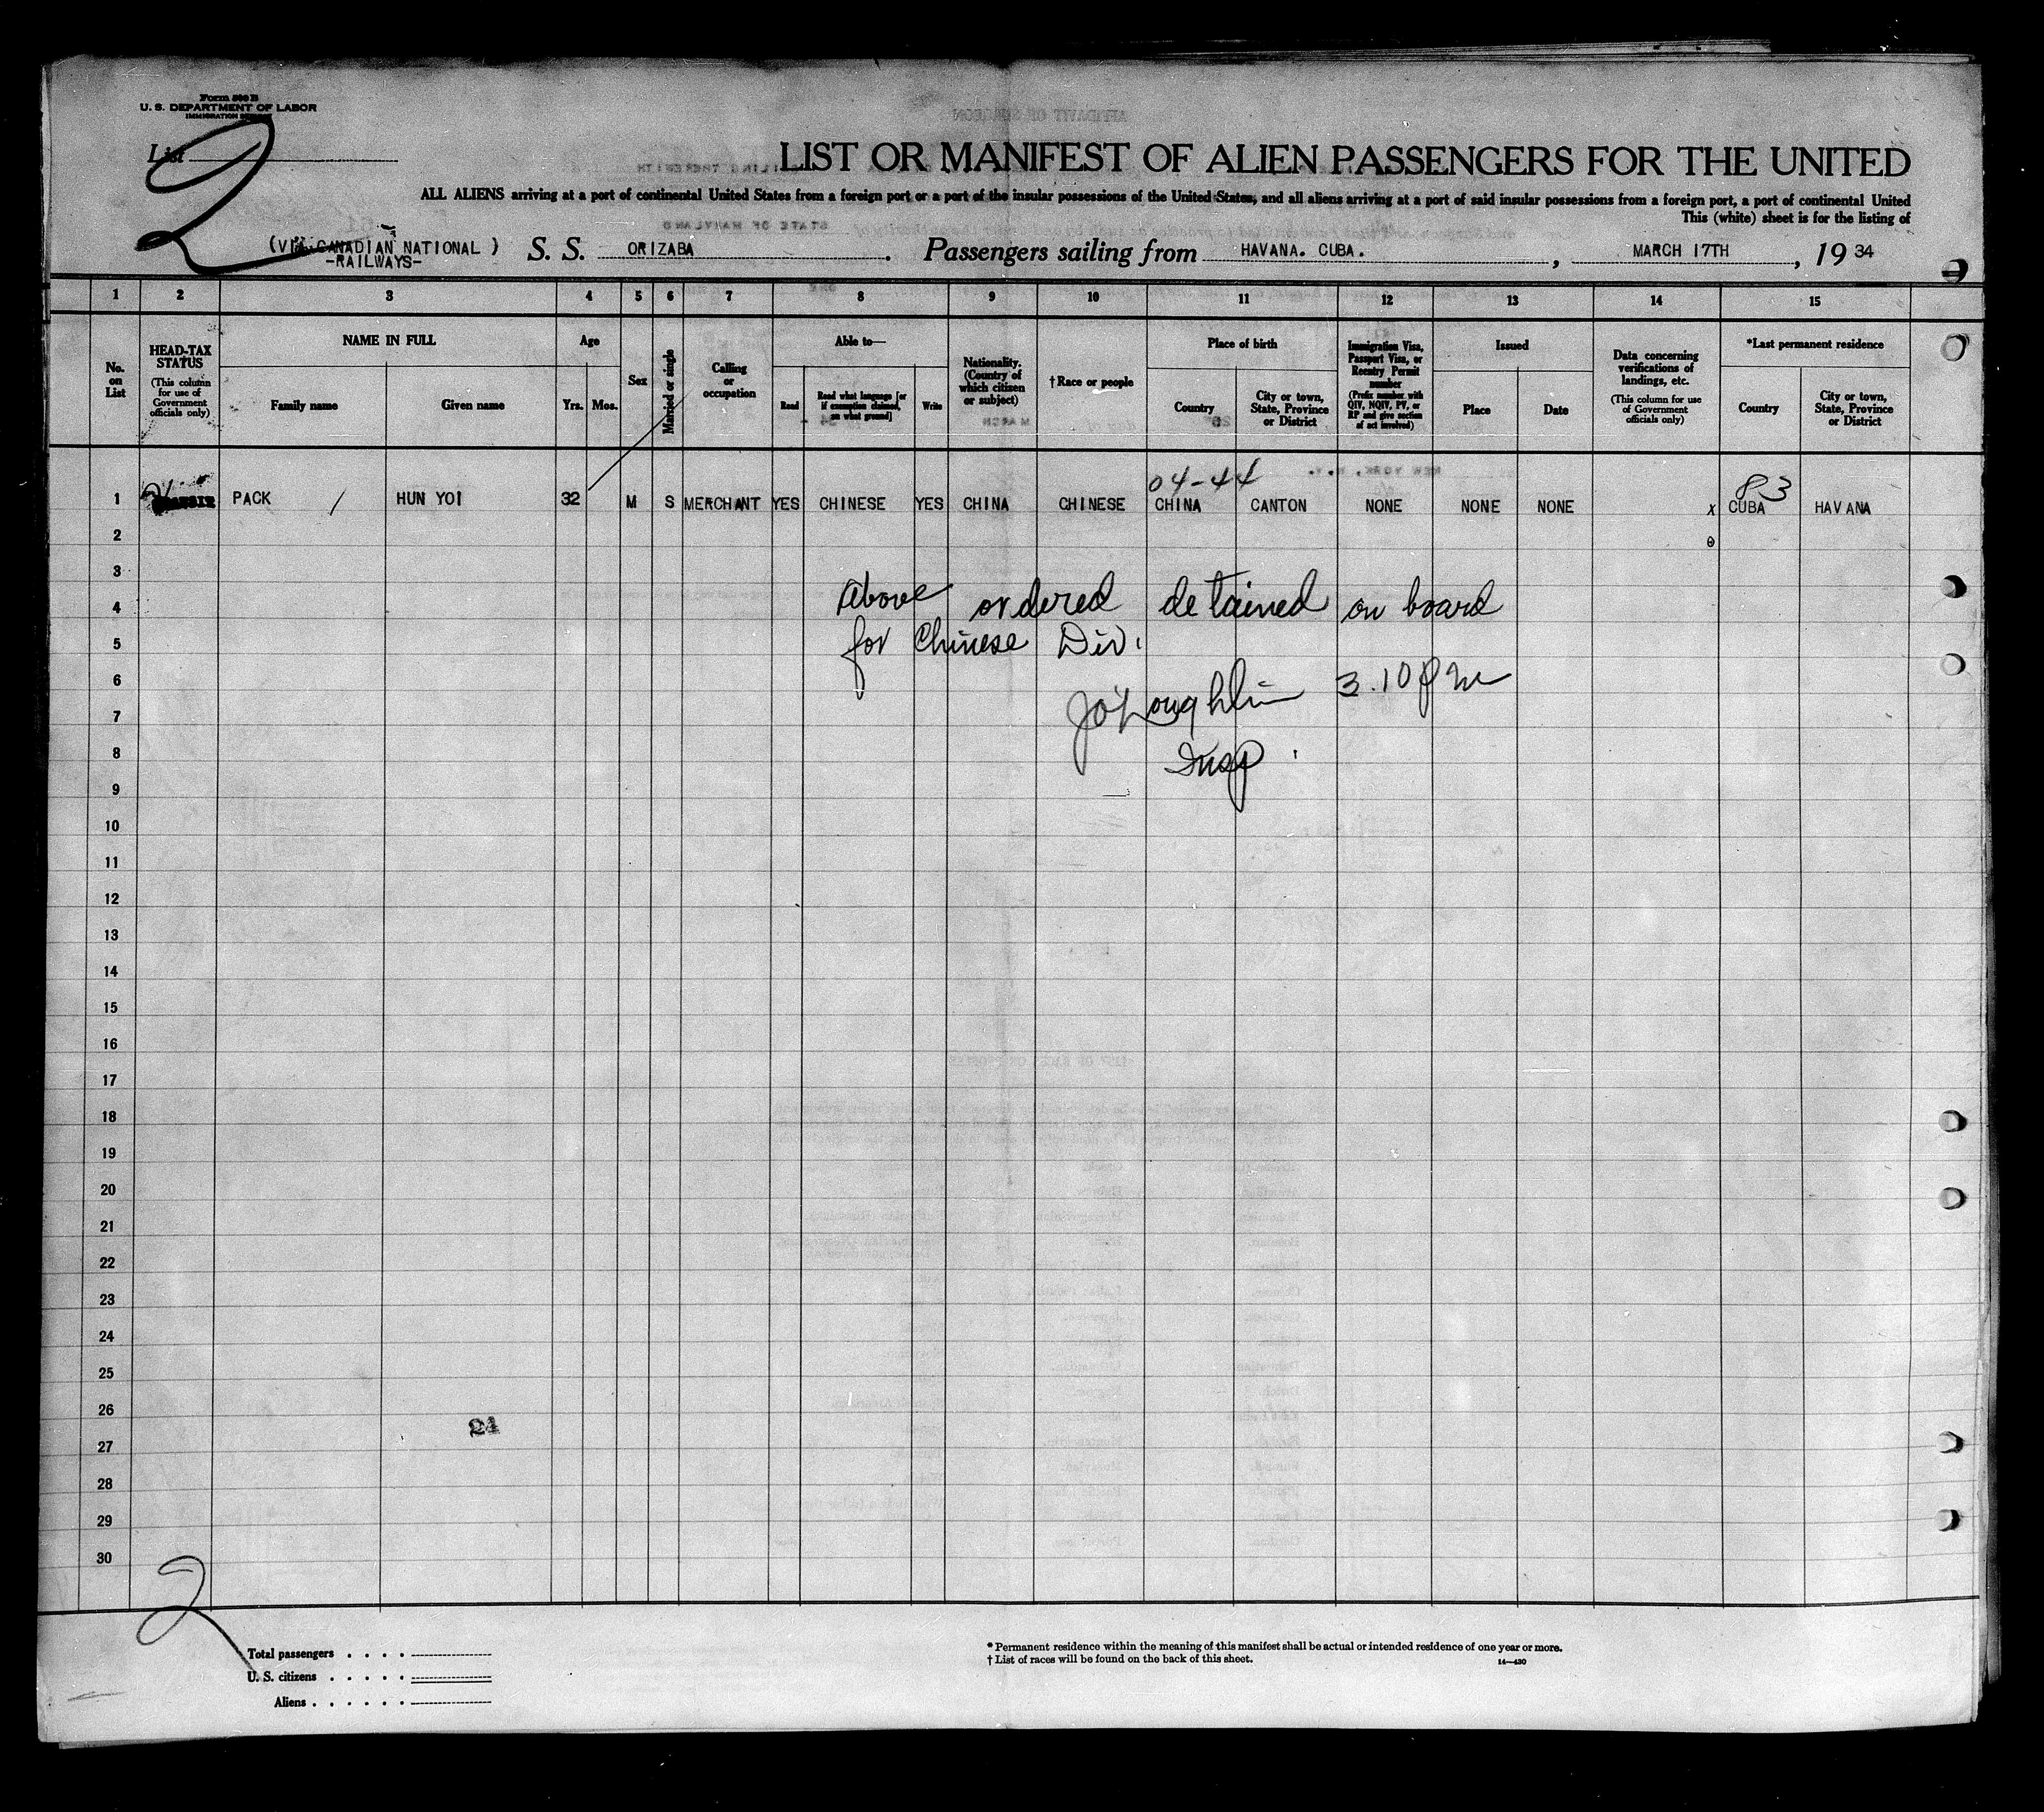 Form 500 B
U. S. DEPARTMENT OF LABOR
IMMIGRATION SERVICE
List
2
LIST OR MANIFEST OF ALIEN PASSENGERS FOR THE UNITED
ALL ALIENS arriving at a port of continental United States from a foreign port or a port of the insular possessions of the United States, and all aliens arriving at a port of said insular possessions from a foreign port, a port of continental United
This (white) sheet is for the listing of
(VIA CANADIAN NATIONAL )
-RAILWAYS-
S. S. ORIZABA. Passengers sailing from HAVANA. CUBA. , MARCH 17TH , 19 34
1 2 3 4 5 6 7 8 9 10 11 12 13 14 15
No. on List
HEAD-TAX STATUS
(This column for use of Government officials only)
NAME IN FULL
Family name
Given name
Age
Yrs. Mos.
Sex
Married or single
Calling or occupation
Able to—
Read
Read what language [or if exemption claimed, on what ground]
Write
Nationality. (Country of which citizen or subject)
† Race or people
Place of birth
Country
City or town, State, Province or District
Immigration Visa, Passport Visa, or Reentry Permit number
(Prefix number with QIV, NQIV, PV, or RP and give section of act involved)
Issued
Place
Date
Data concerning verifications of landings, etc.
(This column for use of Government officials only)
*Last permanent residence
Country
City or town, State, Province or District
04-44
83
1 PACK / HUN YOI 32 M S MERCHANT YES CHINESE YES CHINA CHINESE CHINA CANTON NONE NONE NONE x CUBA HAVANA
2
3
4
5
6
7
8
9
10
11
12
13
14
15
16
17
18
19
20
21
22
23
24
25
26
27
28
29
30
Above ordered detained on board
for Chinese Div.
JO'Loughlin 3.10 pm
Insp.
24
2
Total passengers . . . .
U. S. citizens . . . . .
Aliens . . . . . .
* Permanent residence within the meaning of this manifest shall be actual or intended residence of one year or more.
† List of races will be found on the back of this sheet.
14—430